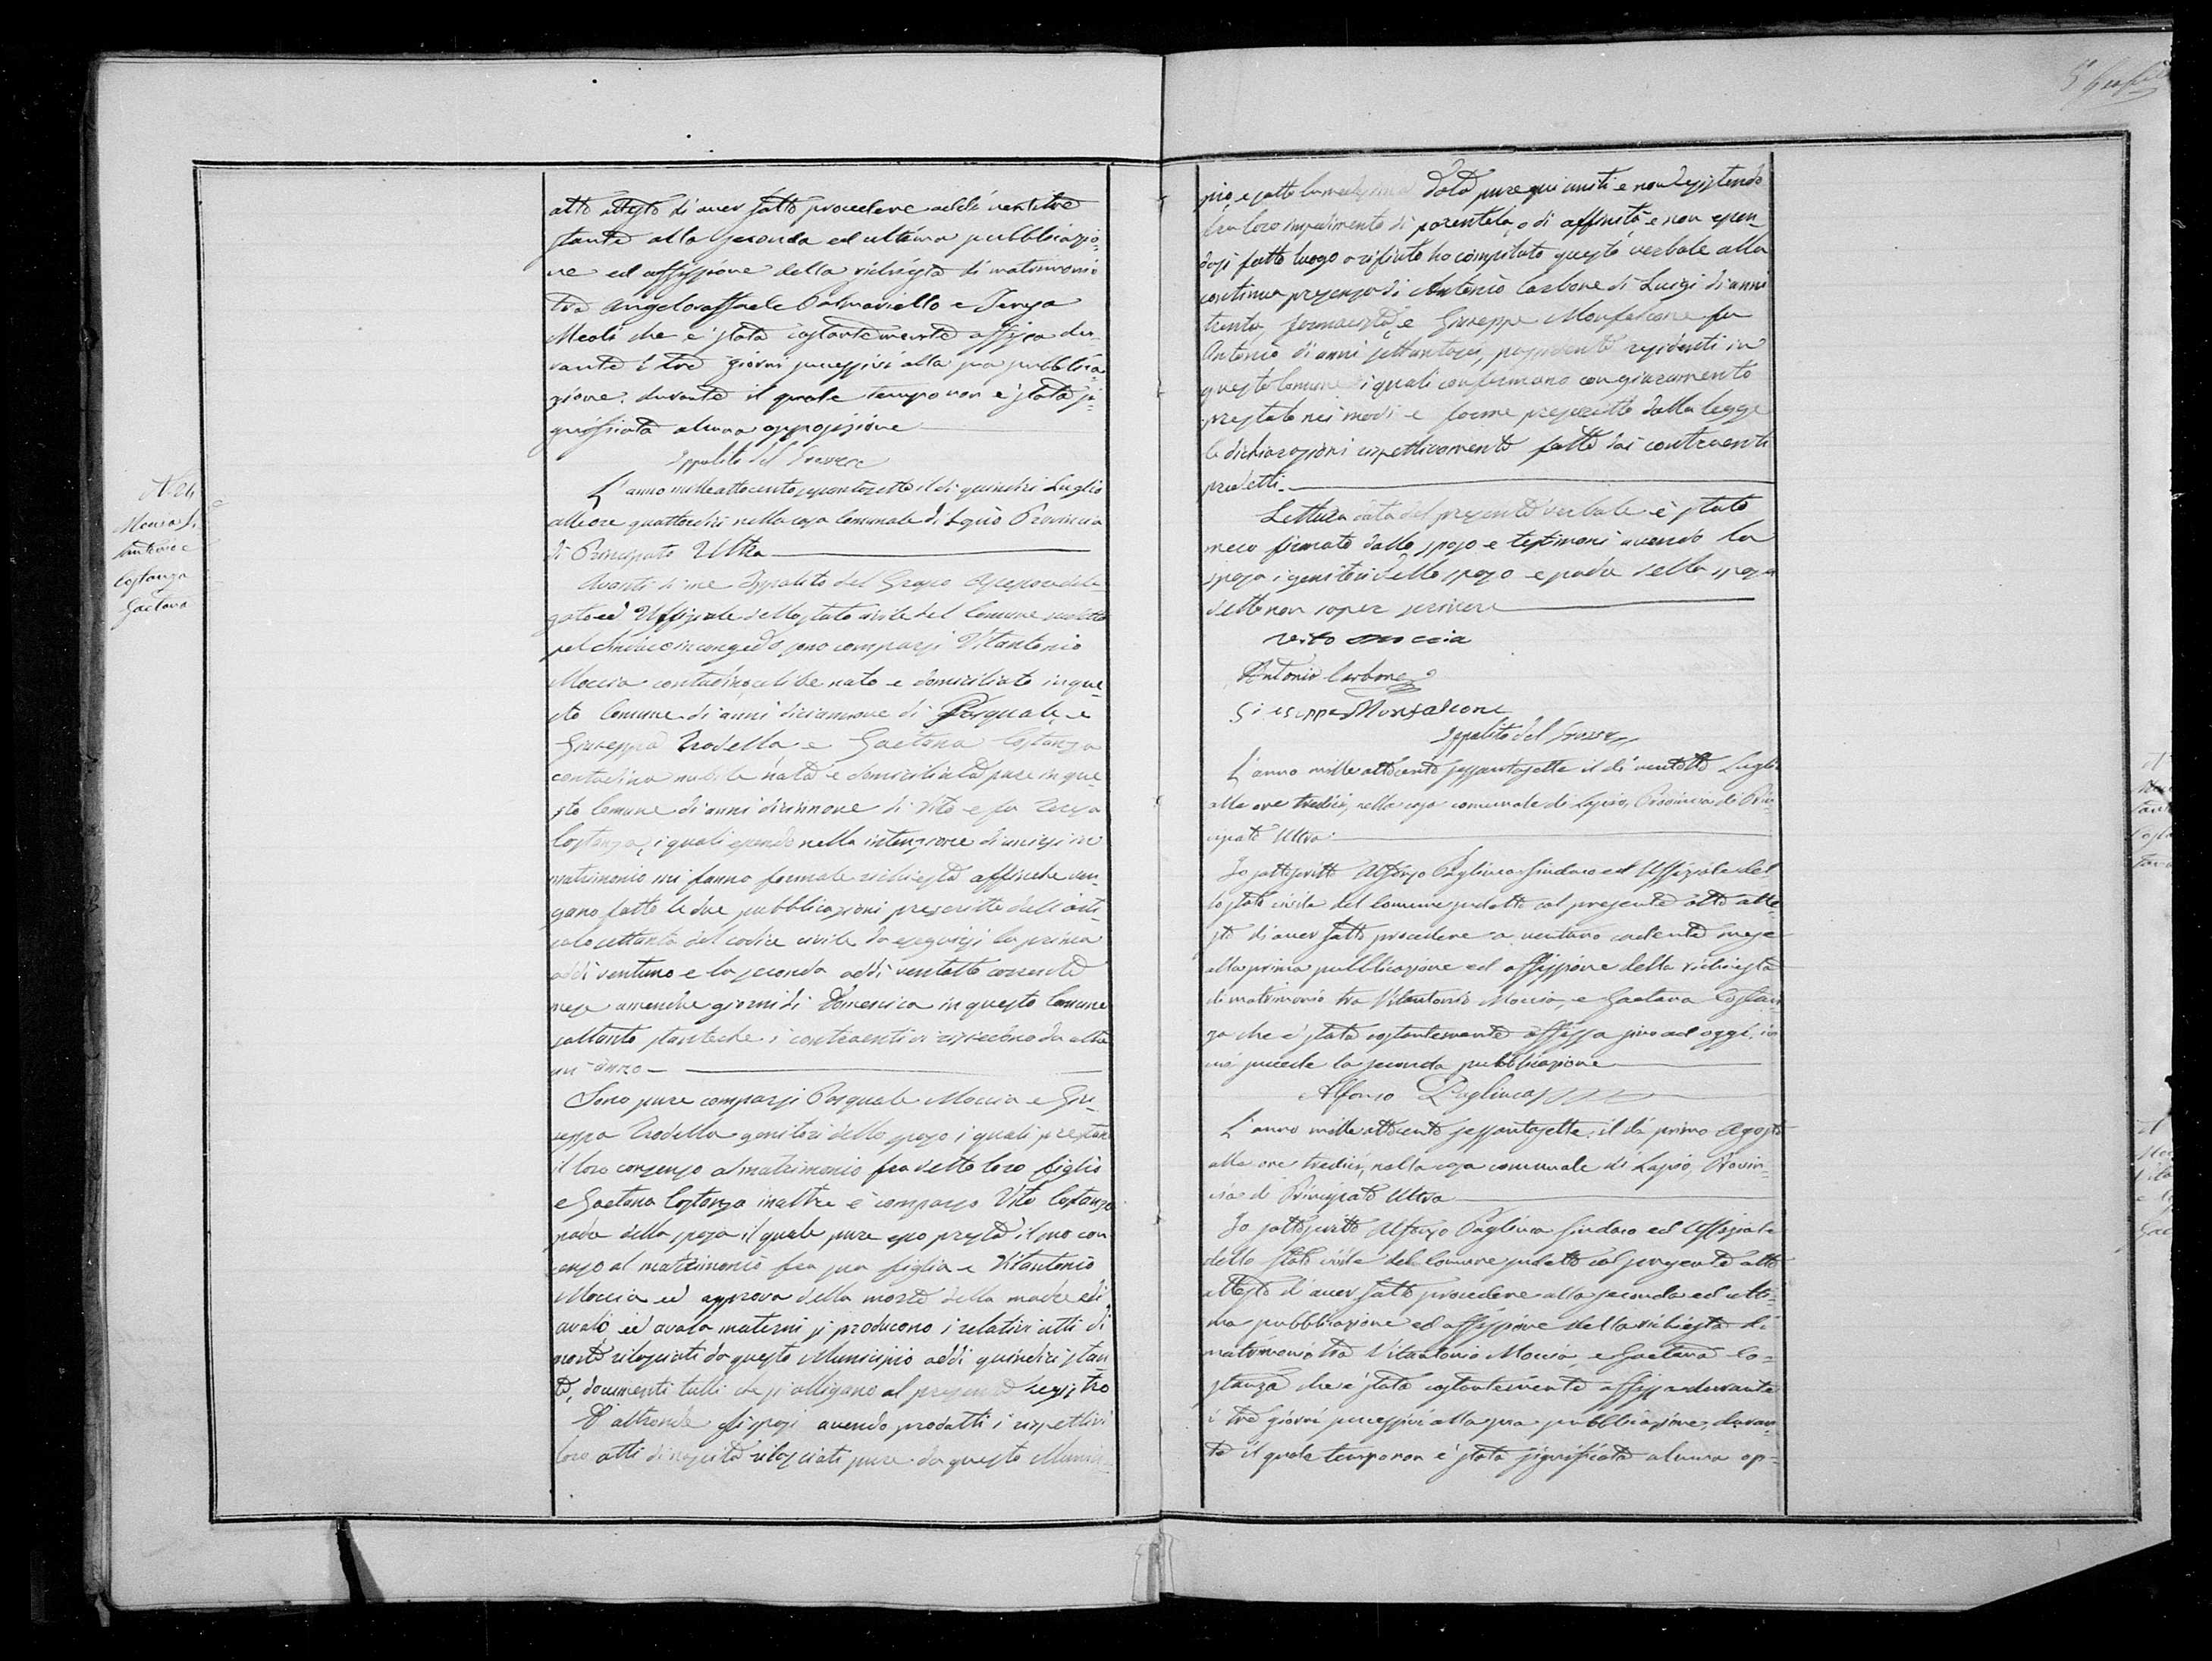 atto attesto di aver fatto procedere addì ventitre
stante alla seconda ed ultima pubblicazio-
ne ed affissione della richiesta di matrimonio
tra Angeloraffaele Palmariello e Teresa
Meoli che è stata costantemente affissa du-
rante i tre giorni successivi alla sua pubblica-
zione. durante il quale tempo non è stata si-
gnificata alcuna opposizione
Ippolito del Grosso
N. 24
Moccia Vi-
tantonio e
Costanza
Gaetana
L'anno milleottocentosessantasette il dì quindici Luglio
alle ore quattordici nella casa Comunale di Lapio Provincia
di Principato Ultra
Avanti di me Ippolito del Grosso Assessore dele-
gato ed Uffiziale dello stato civile del Comune suddetto
pel Sindaco in congedo sono comparsi Vitantonio
Moccia contadino celibe nato e domiciliato in que-
sto Comune di anni diciannove di Pasquale e
Giuseppa Trodella e Gaetana Costanza
contadina nubile nata e domiciliata pure in que-
sto Comune di anni diciannove di Vito e fu Teresa
Costanza, i quali essendo nella intenzione di unirsi in
matrimonio mi fanno formale richiesta affinché ven-
gano fatte le due pubblicazioni prescritte dall'arti-
colo settanta del codice civile da eseguirsi la prima
addì ventuno e la seconda addì ventotto corrente
mese amendue giorni di Domenica in questo Comune
soltanto stanteche i contraenti vi risiedono da oltre
un anno
Sono pure comparsi Pasquale Moccia e Giu-
seppa Trodella genitori dello sposo i quali prestano
il loro consenso al matrimonio fra detto loro figlio
e Gaetana Costanza inoltre è comparso Vito Costanza
padre della sposa il quale pure esso presta il suo con
senso al matrimonio fra sua figlia e Vitantonio
Moccia ed a pprova della morte della madre ed
avolo ed avola materni si producono i relativi atti di
morte rilasciati da questo Municipio addì quindici stan-
te, documenti tutti che si alligano al presente registro
D'altronde gli sposi avendo prodotti i rispettivi
loro atti di nascita rilasciati pure da questo Munici-
pio, e sotto la medesima data pure qui uniti e non esistendo
fra loro impedimento di parentela, o di affinità e non essen-
dosi fatto luogo a rifiuto ho compilato questo verbale alla
continua presenza di Antonio Carbone di Luigi di anni
trenta, farmacista, e Giuseppe Monfalcone fu
Antonio di anni settantasei, possidente residenti in
questo Comune i quali confermano con giuramento
prestato nei modi e forme prescritte dalla legge
le dichiarazioni rispettivamente fatte dai contraenti
predetti.
Lettura data del presente verbale è stato
meco firmato dallo sposo e testimoni avendo la
sposa i genitori dello sposo e padre della sposa
detto non saper scrivere
Vito Moccia
Antonio Carbone
Giuseppe Monfalcone
Ippolito del Grosso
L'anno milleottocento sessantasette il dì ventotto Luglio
alle ore tredici, nella casa comunale di Lapio, Provincia di Prin-
cipato Ultra
Io sottoscritto Alfonso Pagliuca Sindaco ed Uffiziale del-
lo stato civile del Comune sudetto col presente atto atte-
sto di aver fatto procedere a ventuno cadente mese
alla prima pubblicazione ed affissione della richiesta
di matrimonio tra Vitantonio Moccia, e Gaetana Costan-
za che è stata costantemente affissa sino ad oggi, in
cui succede la seconda pubblicazione
Alfonso Pagliuca
L'anno milleottocento sessantasette, il dì primo Agosto
alle ore tredici, nella casa comunale di Lapio, Provin-
cia di Principato Ultra
Io sottoscritto Alfonso Pagliuca Sindaco ed Uffiziale
dello stato civile del Comune sudetto col presente atto
attesto di aver fatto procedere alla seconda ed ulti-
ma pubblicazione ed affissione della richiesta di
matrimonio tra Vitantonio Moccia, e Gaetana Co-
stanza che è stata costantemente affissa durante
i tre giorni successivi alla sua pubblicazione, duran-
te il quale tempo non è stata significata alcuna op-